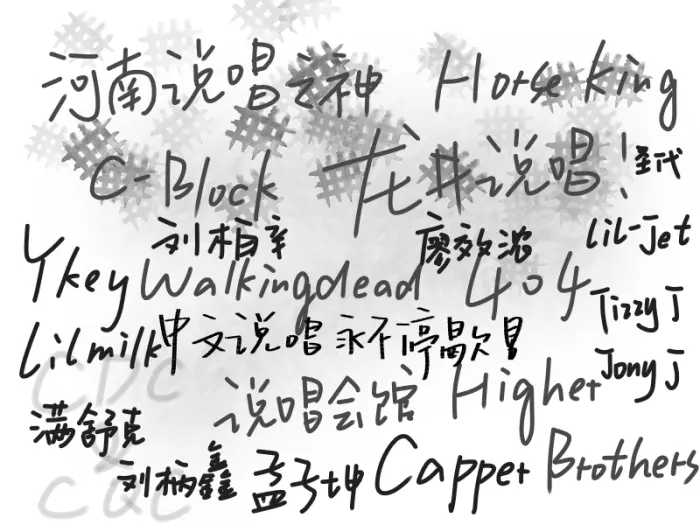 河南说唱之神 Horse king
C-Block 龙井说唱! 圣代
刘柏辛 廖效浓 Lil-Jet
YkeyWalkingdead 404 Tizzy J
Lilmilk中文说唱永不停歇!
CDC 说唱会馆 Higher Jony J
满舒克 刘柄鑫 孟子坤 Capper Brothers
CQC